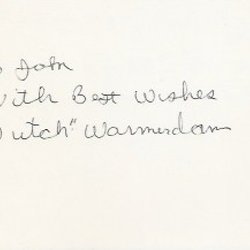 o John
With Best Wishes
Dutch" Warmerdam